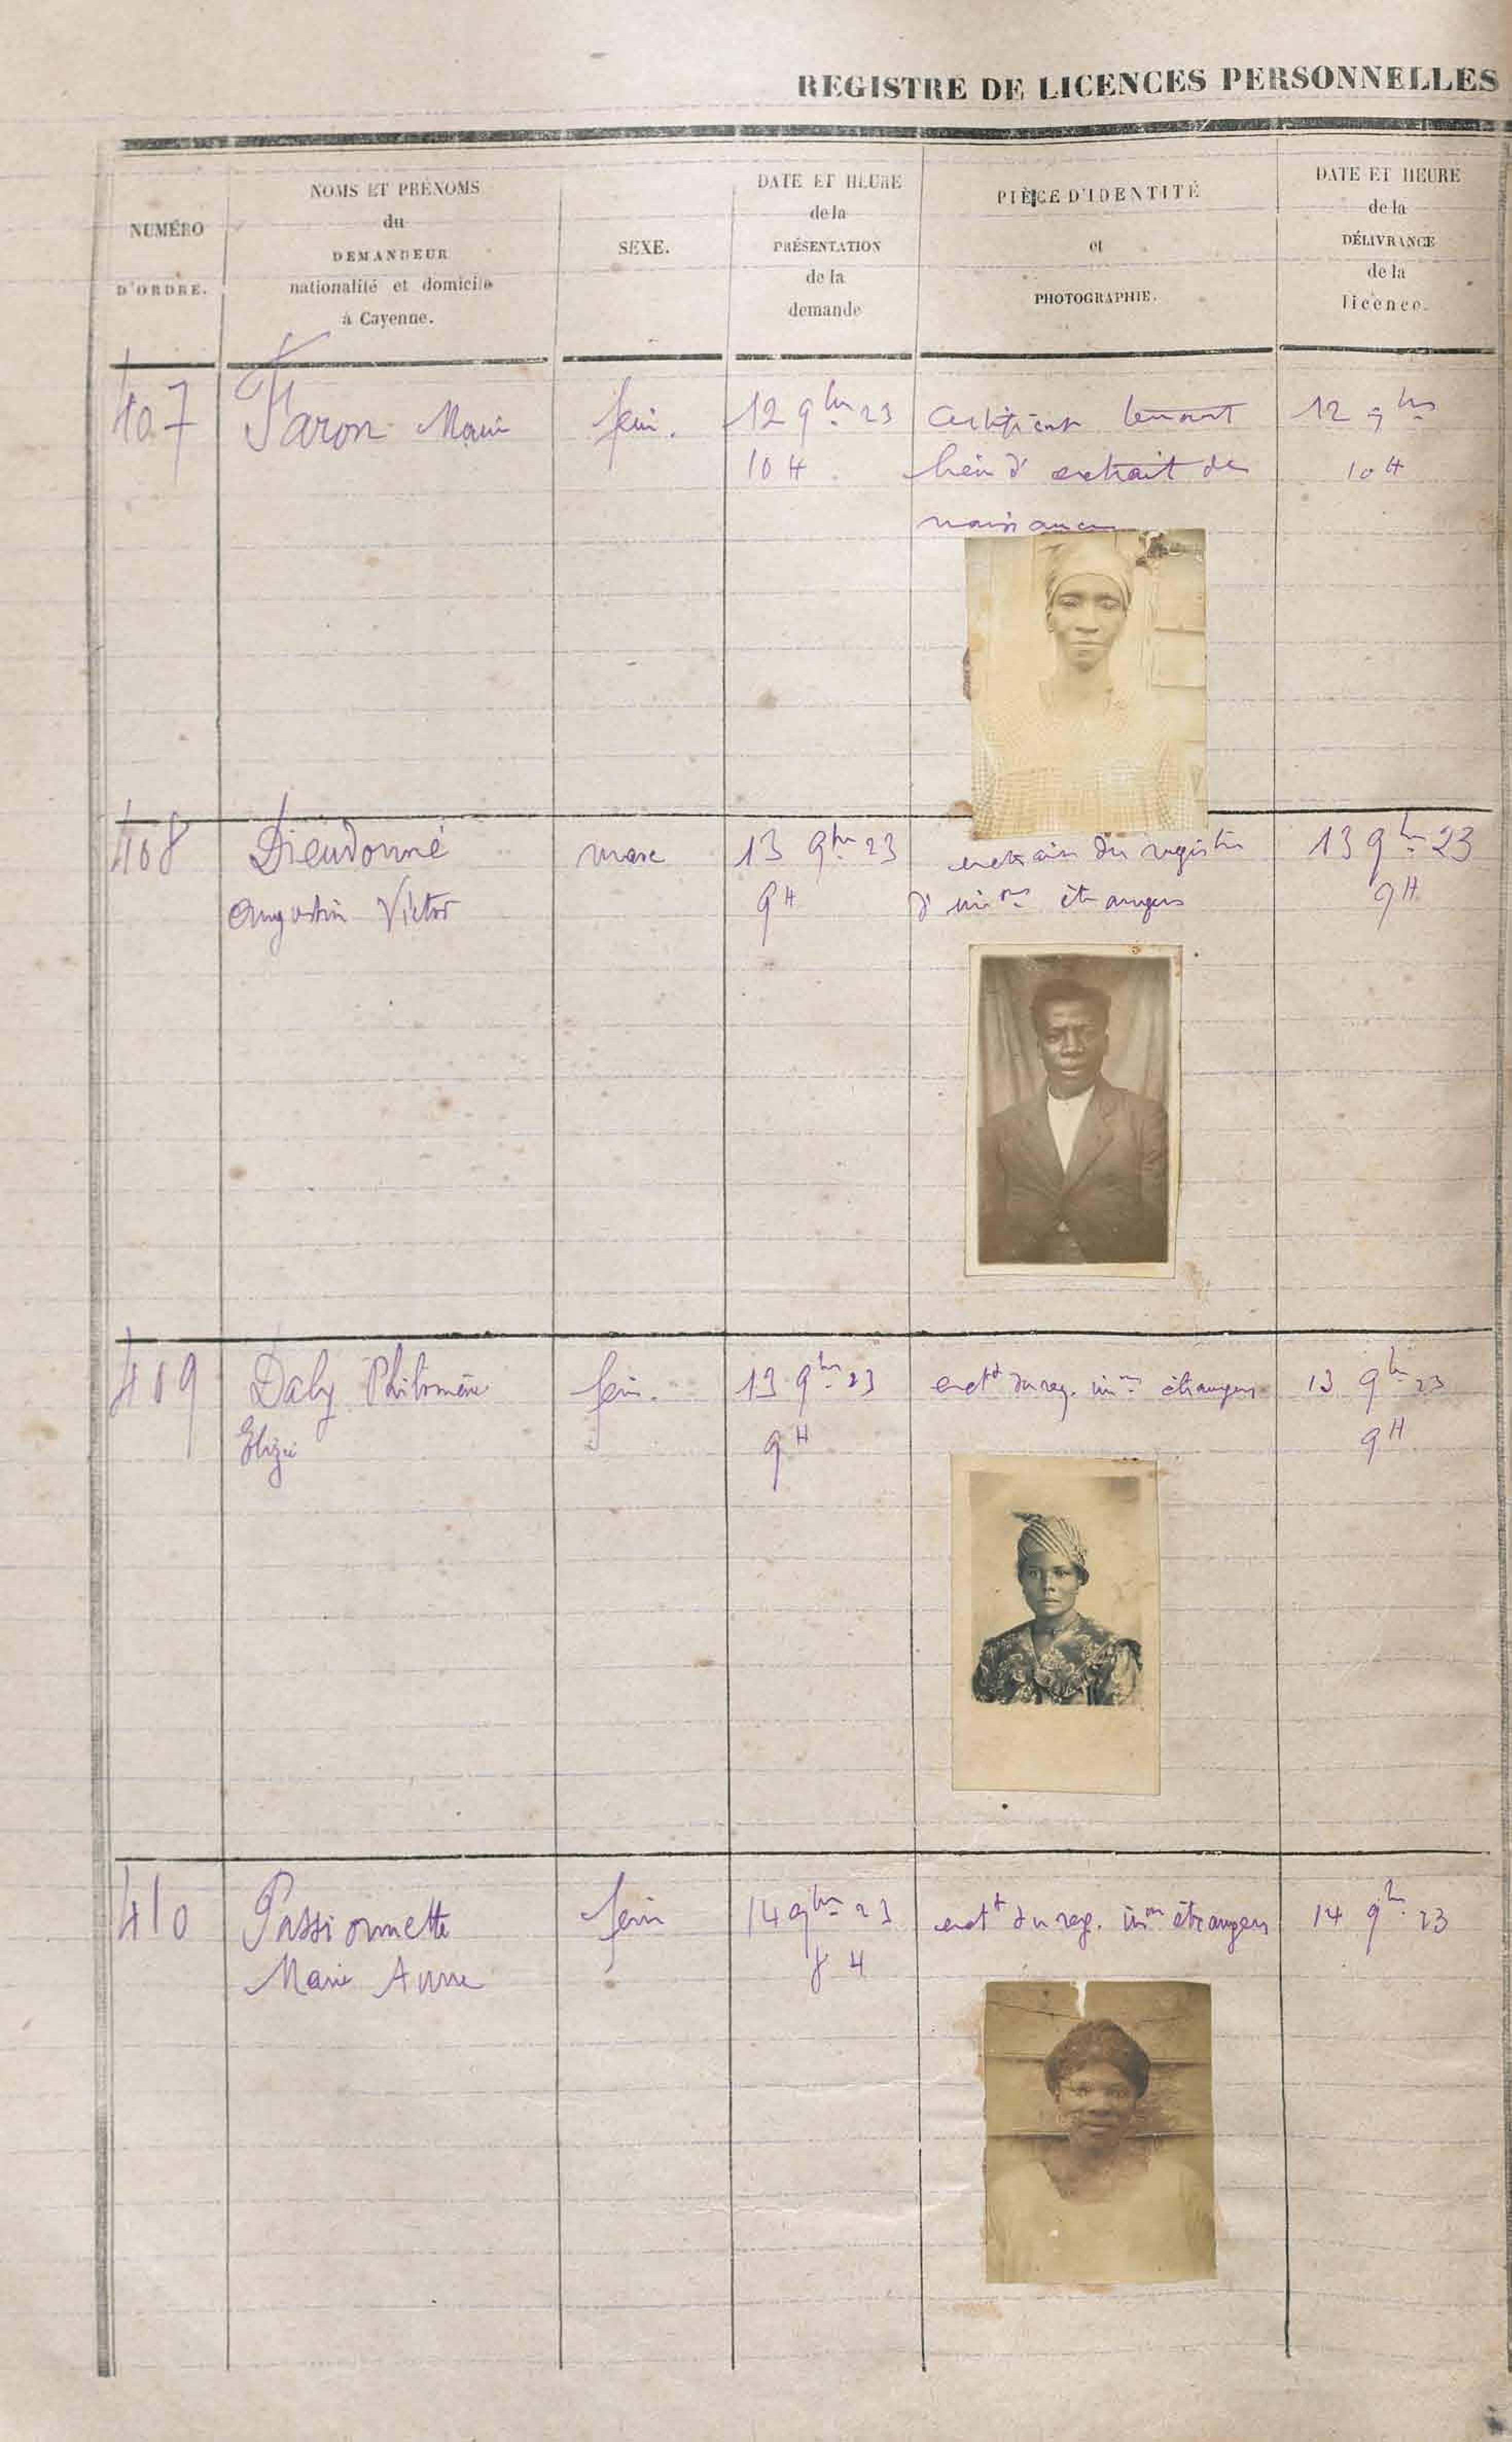 REGISTRE DE LICENCES PERSONNELLES
NUMÉRO
D'ORDRE.
NOMS ET PRÉNOMS
du
DEMANDEUR
nationalité et domicile
à Cayenne.
SEXE.
DATE ET HEURE
de la
PRÉSENTATION
de la
demande
PIÈCE D'IDENTITÉ
et
PHOTOGRAPHIE.
DATE ET HEURE
de la
DÉLIVRANCE
de la
licence.
407
Faron Marie
fém.
12 9bre 23
10 H
Certificat tenant
lieu d'extrait de
naissance
12 9bre
10 H
408
Dieudonné
Augustin Victor
masc
13 9bre 23
9 H
extrait du registre
d'imon étrangers
13 9bre 23
9 H
409
Daly Philomène
fém.
13 9bre 23
9 H
extt du reg. imon étrangers
13 9bre 23
9 H
410
Passionnette
Marie Anne
fém
14 9bre 23
8 H
extt du reg. imon étrangers
14 9bre 23